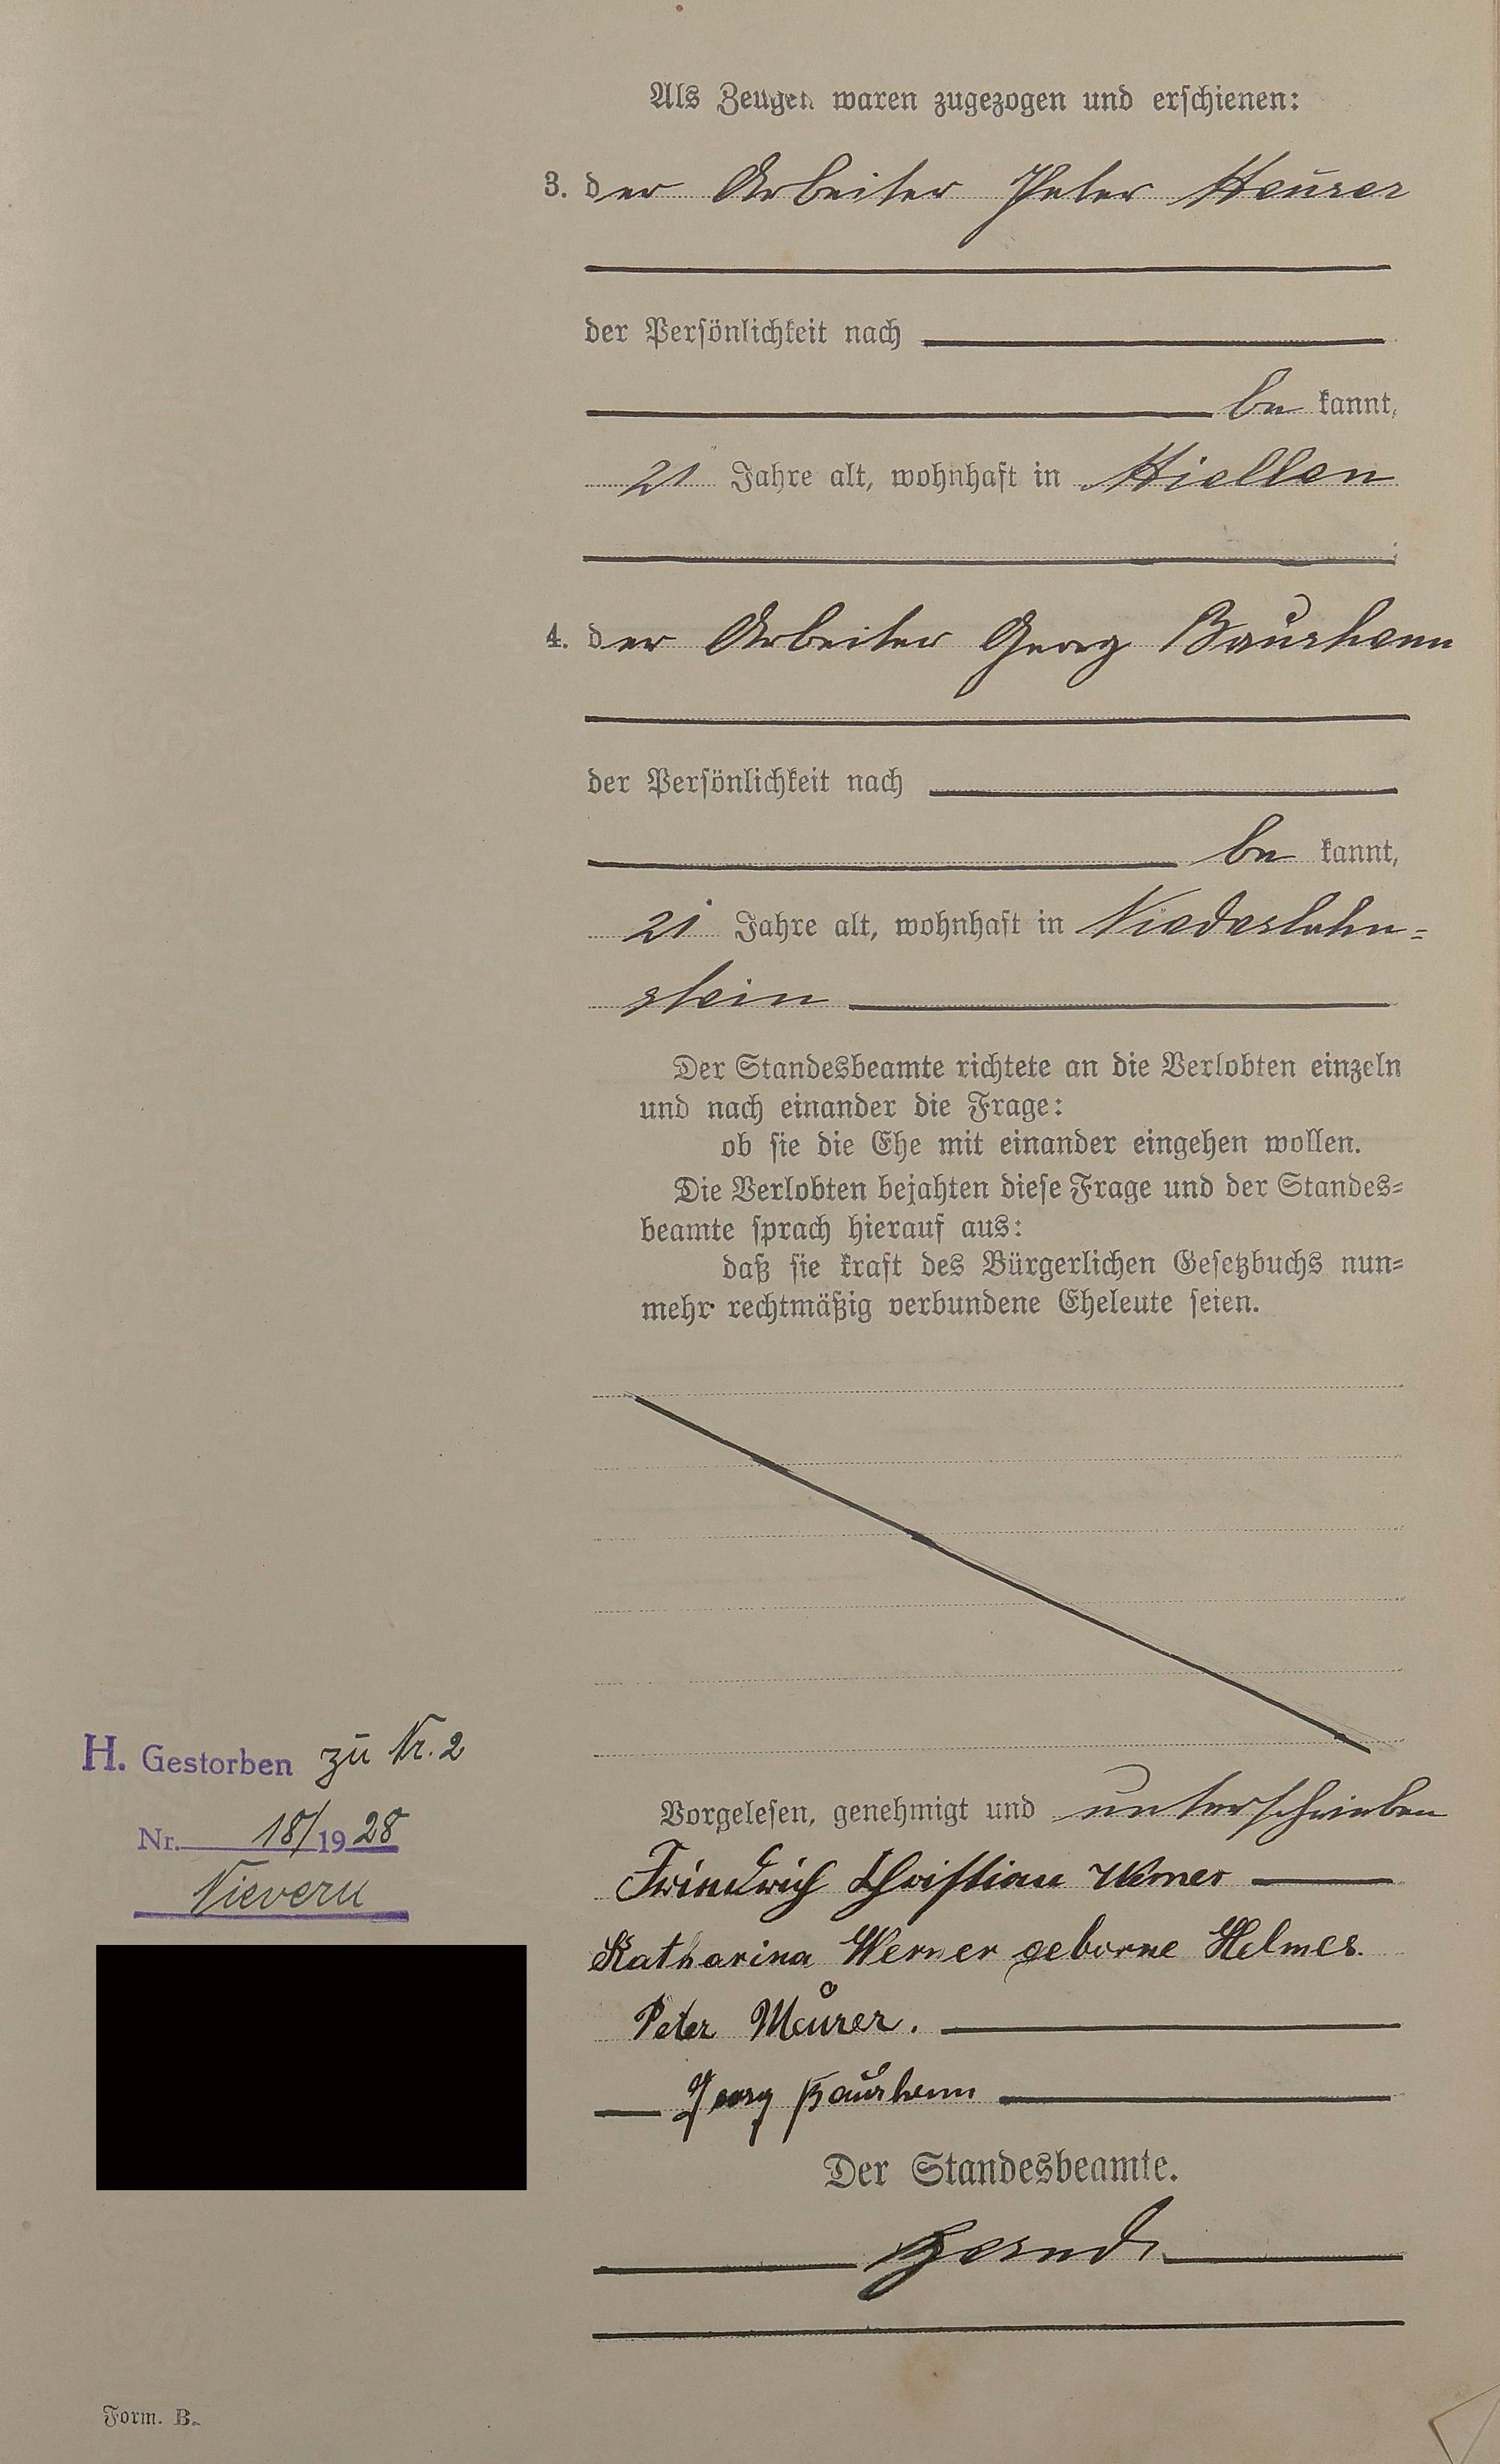 Als Zeugen waren zugezogen und erschienen:
3. der Arbeiter Peter Meurer
der Persönlichkeit nach
be kannt,
21 Jahre alt, wohnhaft in Miellen
;
4. der Arbeiter Georg Baurhenn
der Persönlichkeit nach
be kannt,
21 Jahre alt, wohnhaft in Niederlahn-
stein
Der Standesbeamte richtete an die Verlobten einzeln
und nach einander die Frage:
ob sie die Ehe mit einander eingehen wollen.
Die Verlobten bejahten diese Frage und der Standes-
beamte sprach hierauf aus:
daß sie kraft des Bürgerlichen Gesetzbuchs nun-
mehr rechtmäßig verbundene Eheleute seien.
H. Gestorben zu Nr. 2
Nr. 18/1928
Nievern
Vorgelesen, genehmigt und unterschrieben
Friedrich Christian Werner
Katharina Werner geborne Helmes.
Peter Meurer.
Georg Baurhenn
Der Standesbeamte.
Form. B.